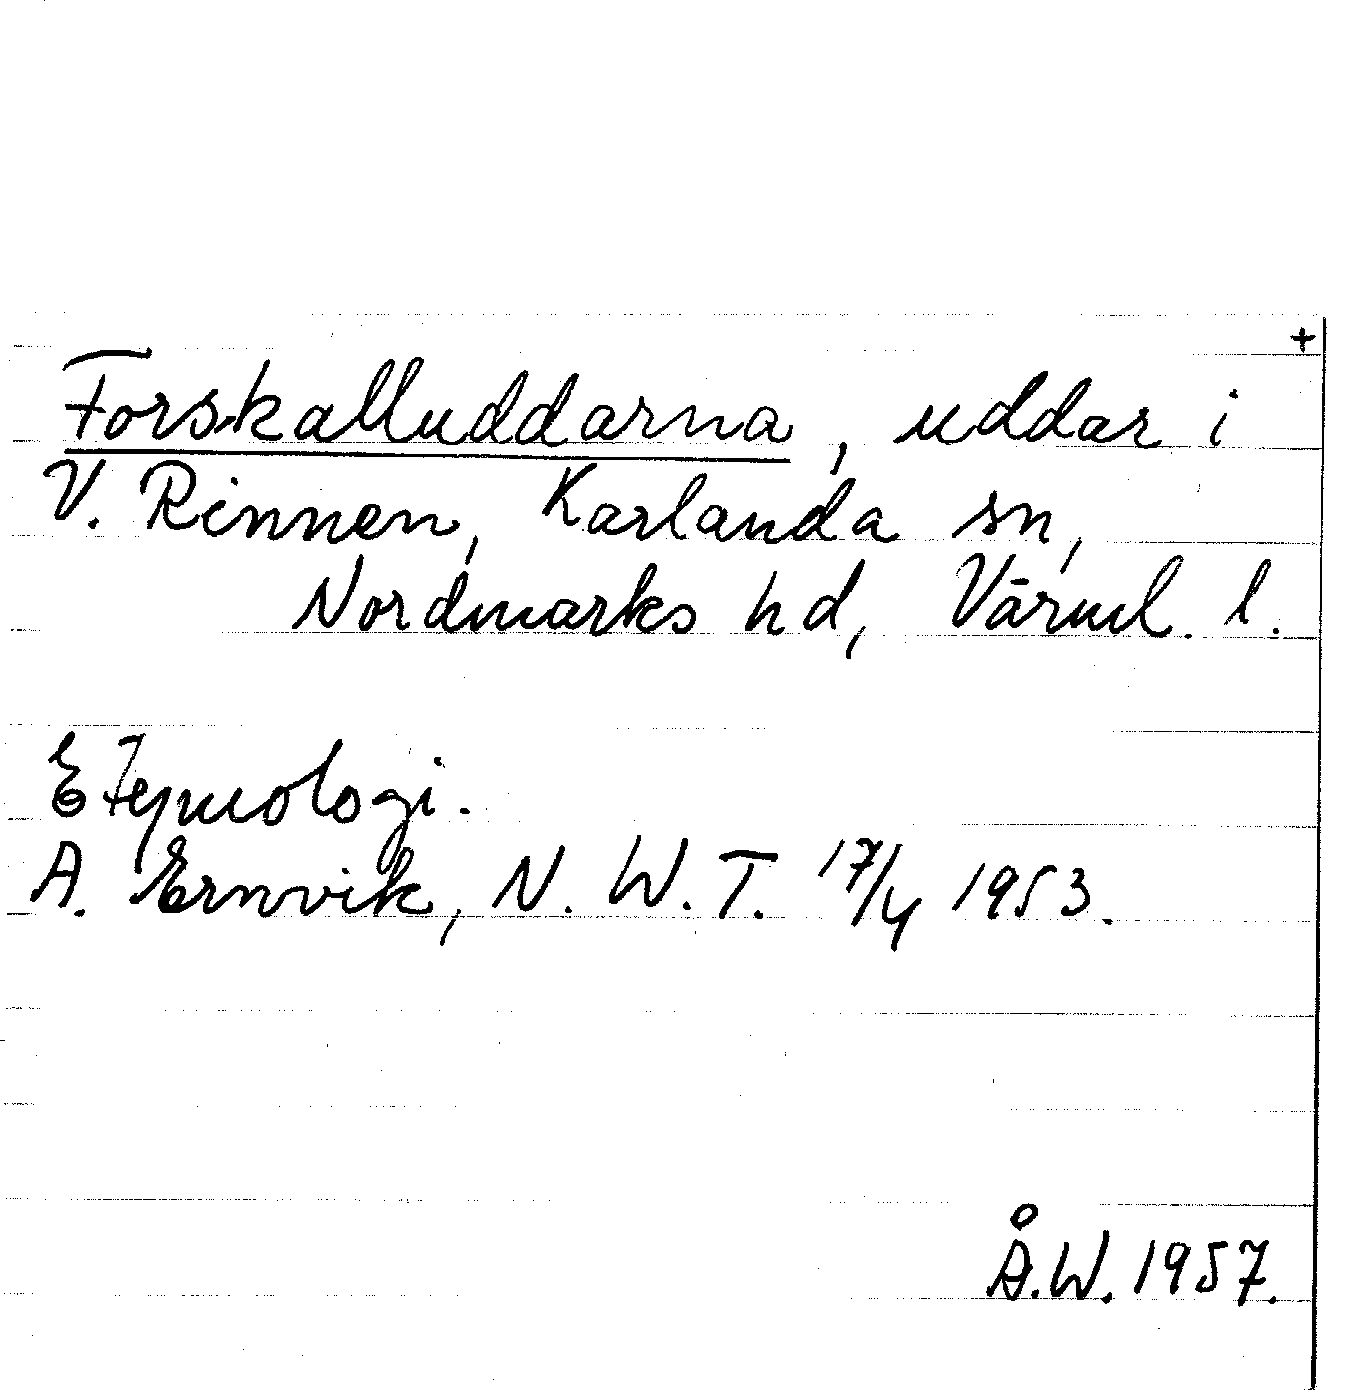 +
Forskalluddarna, uddar i
V. Rinnen, Karlanda sn,
Nordmarks hd, Värml. l.
Etymologi.
A. Ernvik, N. W. T. 17/4 1953.
Å.W. 1957.